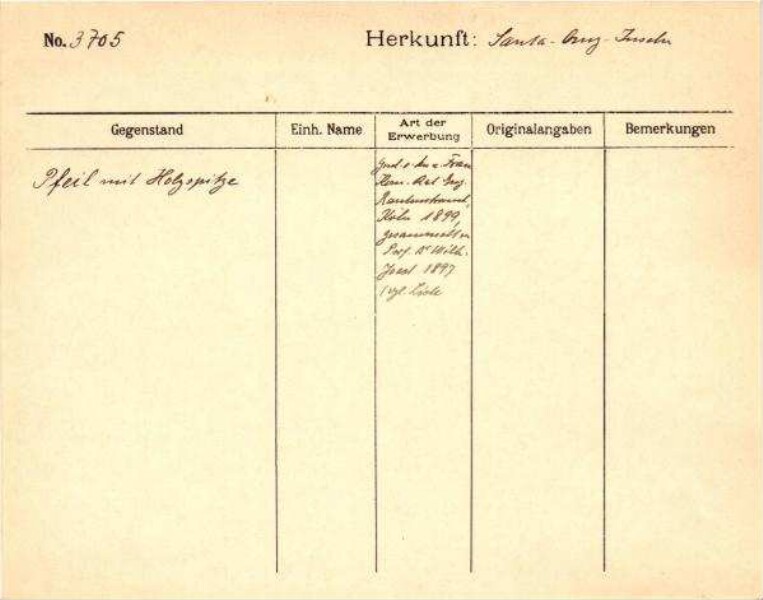 No. 3705 Herkunft: Santa-Cruz-Inseln
Gegenstand Einh. Name Art der Erwerbung Originalangaben Bemerkungen
Pfeil mit Holzspitze
Frau
Kom. Rat Eug.
Rautenstrauch,
Köln 1899,
gesammelt v.
Prof. Dr Wilh.
Joest 1897
(vgl. Liste